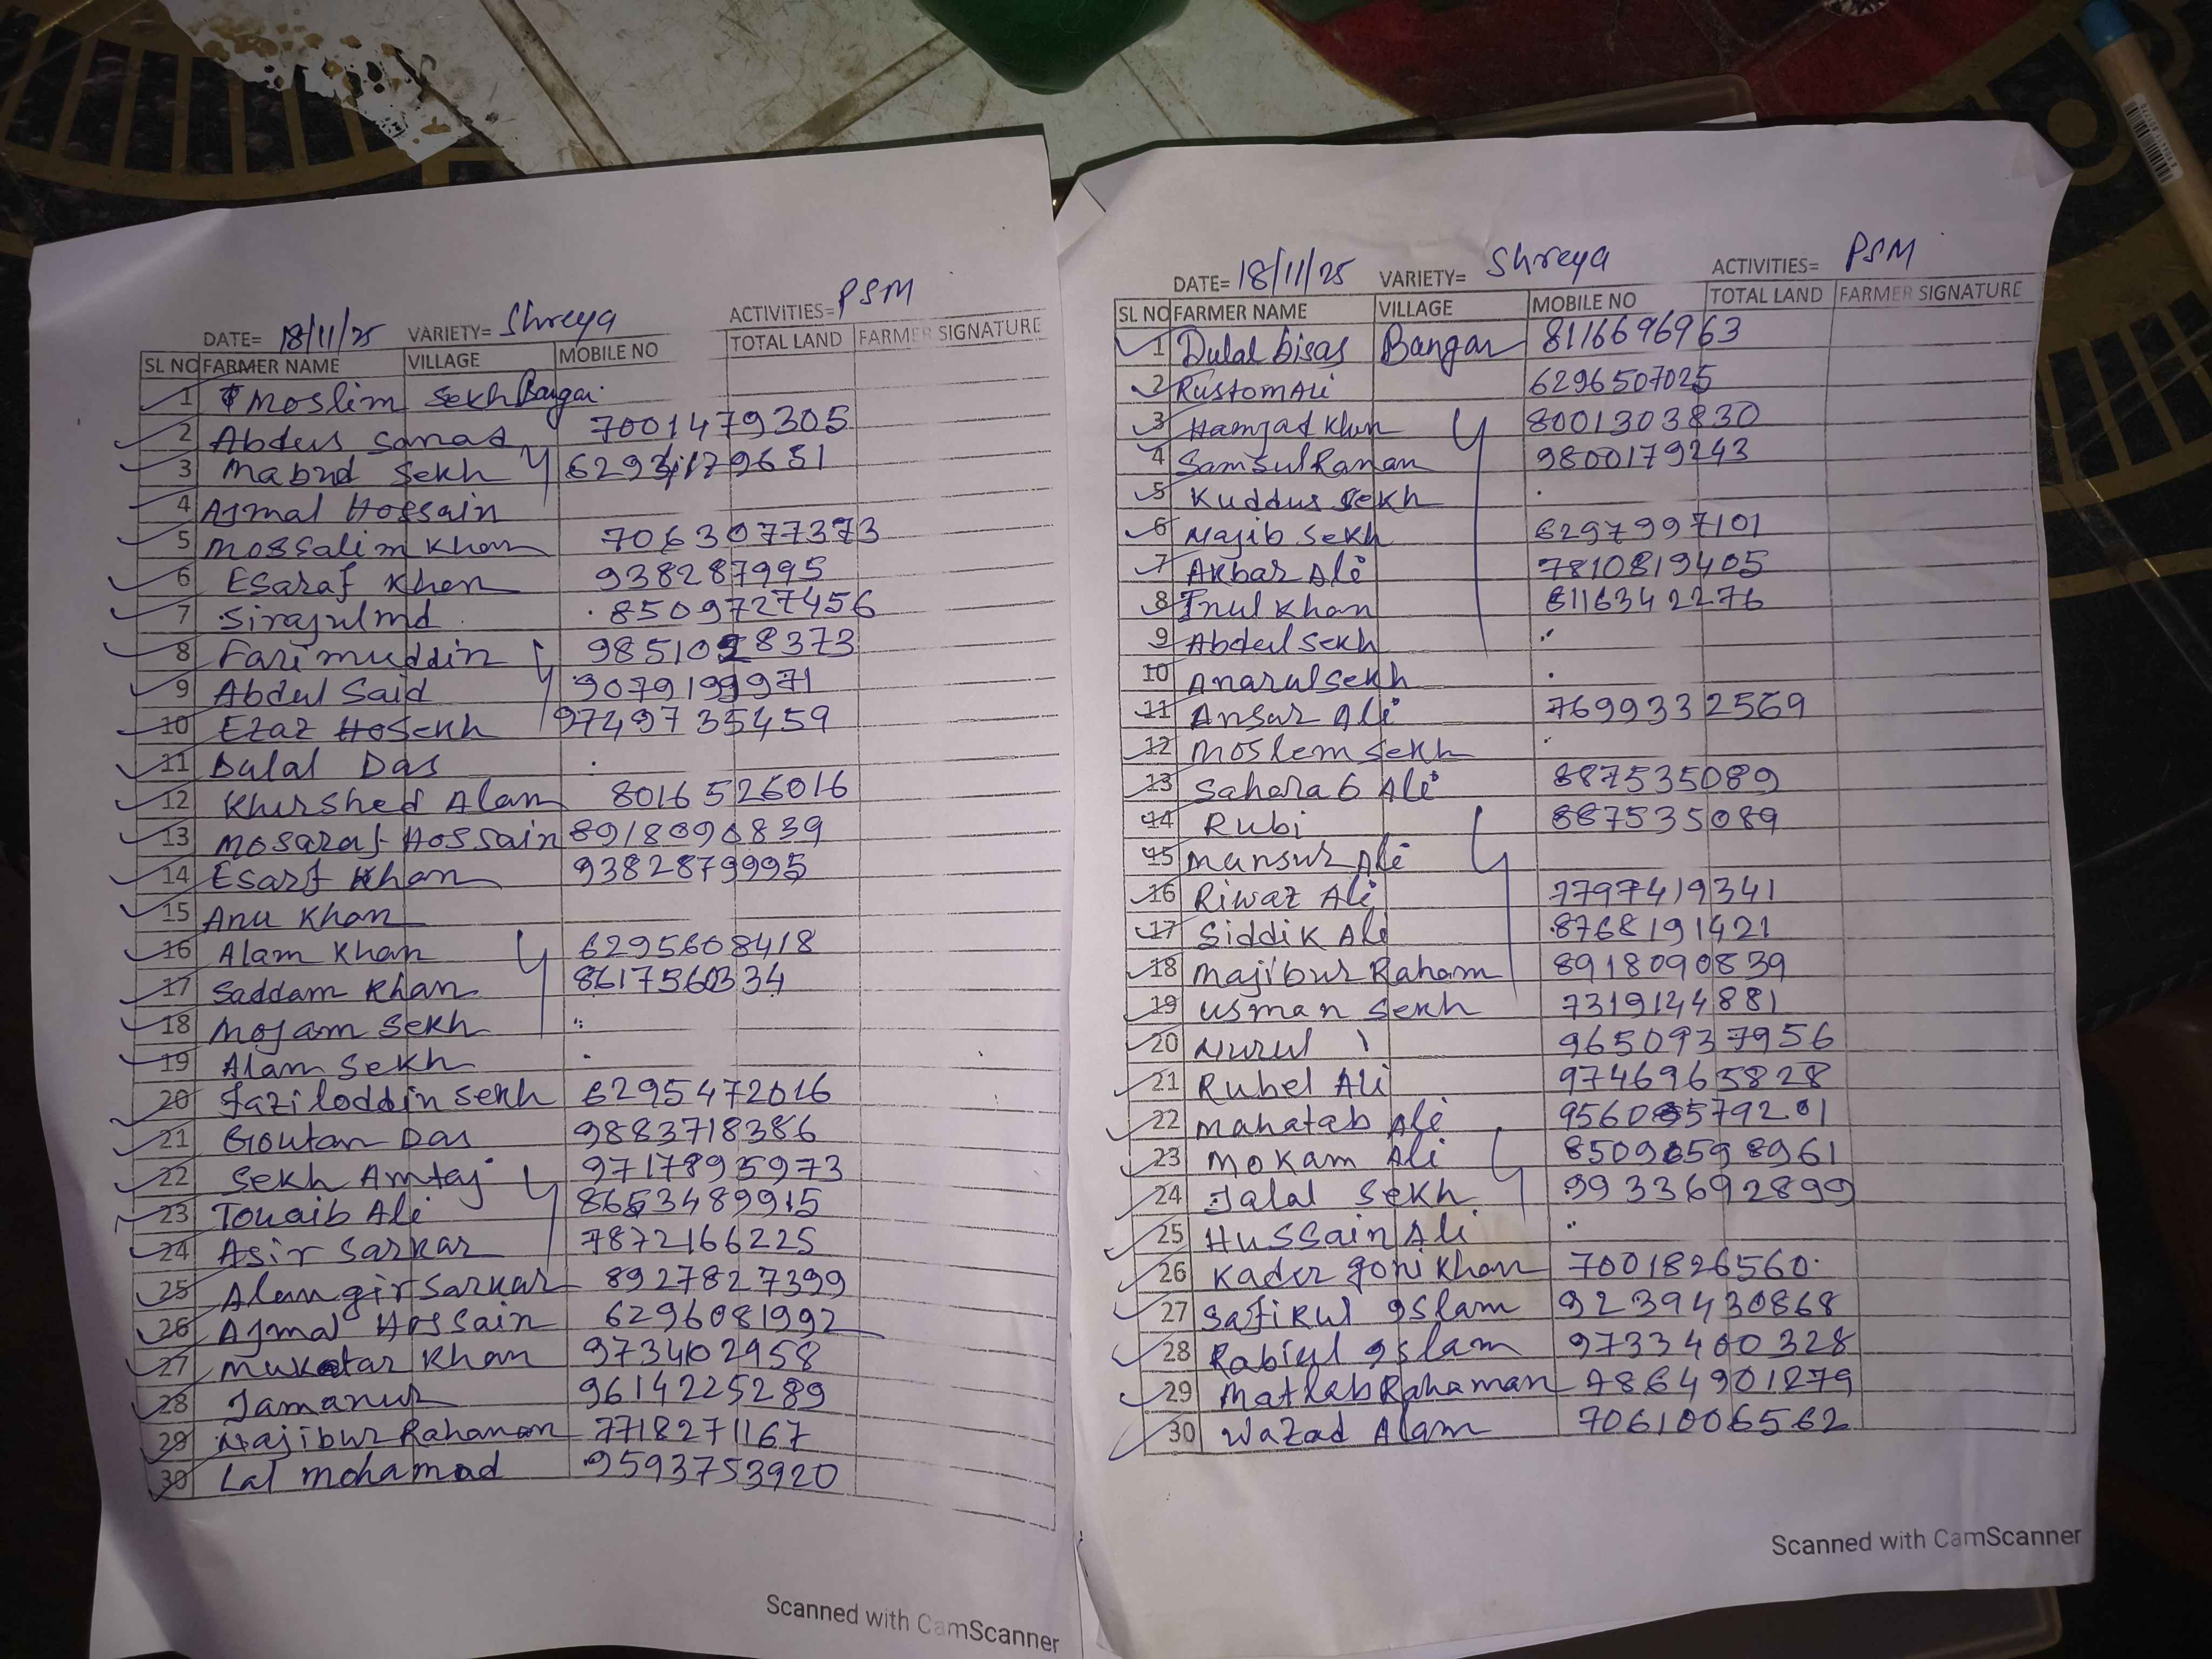 DATE= 18/11/25 VARIETY= Shreya ACTIVITIES= PSM
SL NO FARMER NAME VILLAGE MOBILE NO TOTAL LAND FARMER SIGNATURE
1 Moslim Sekh Bangar
2 Abdus Samad 7001479305
3 Mabud Sekh 6293179651
4 Ajmal Hossain
5 Mossalim Khan 7063077373
6 Esaraf Khan 938287995
7 Sirajul md 8509727456
8 Farimuddin 9851028373
9 Abdul Said 9079199971
10 Ezaz Hosekh 9749735459
11 Dulal Das
12 Khurshed Alam 8016526016
13 Mosaraf Hossain 8918090839
14 Esarf Khan 9382879995
15 Anu Khan
16 Alam Khan 6295608418
17 Saddam Khan 8617560334
18 Mojam Sekh
19 Alam Sekh
20 Faziloddin Sekh 6295472016
21 Goutan Das 9883718386
22 Sekh Amtaj 9717895973
23 Touaib Ali 8653489915
24 Asir Sarkar 7872166225
25 Alamgir Sarkar 8927827399
26 Ajmal Hossain 6296081992
27 Mukatar Khan 9734102958
28 Jamanur 9614225289
29 Najibur Rahaman 7718271167
30 Lal mohamad 9593753920
Scanned with CamScanner
DATE= 18/11/25 VARIETY= Shreya ACTIVITIES= PSM
SL NO FARMER NAME VILLAGE MOBILE NO TOTAL LAND FARMER SIGNATURE
1 Dulal bisas Bangar 8116696963
2 Rustom Ali 6296507025
3 Hamjad Khan 8001303830
4 Samsul Raman 9800179243
5 Kuddus Sekh
6 Najib Sekh 6297997101
7 Akbar Ali 7810819405
8 Inul Khan 8116342276
9 Abdul Sekh
10 Anarul Sekh
11 Ansar Ali 7699332569
12 Moslem Sekh
13 Saharab Ali 887535089
14 Rubi 887535089
15 Mansur Ali
16 Riwaz Ali 7797419341
17 Siddik Ali 8768191421
18 Majibur Raham 8918090839
19 Usman Sekh 7319124881
20 Nurul 9650937956
21 Rubel Ali 9746965828
22 Mahatab Ali
23 Mokam Ali
24 Jalal Sekh 9933692899
25 Hussain Ali
26 Kader goni Khan 7001826560
27 Safikul Islam 9239430868
28 Rabiul Islam 9733400328
29 Matlab Rahaman 7864901279
30 Wazad Alam 7061006562
Scanned with CamScanner